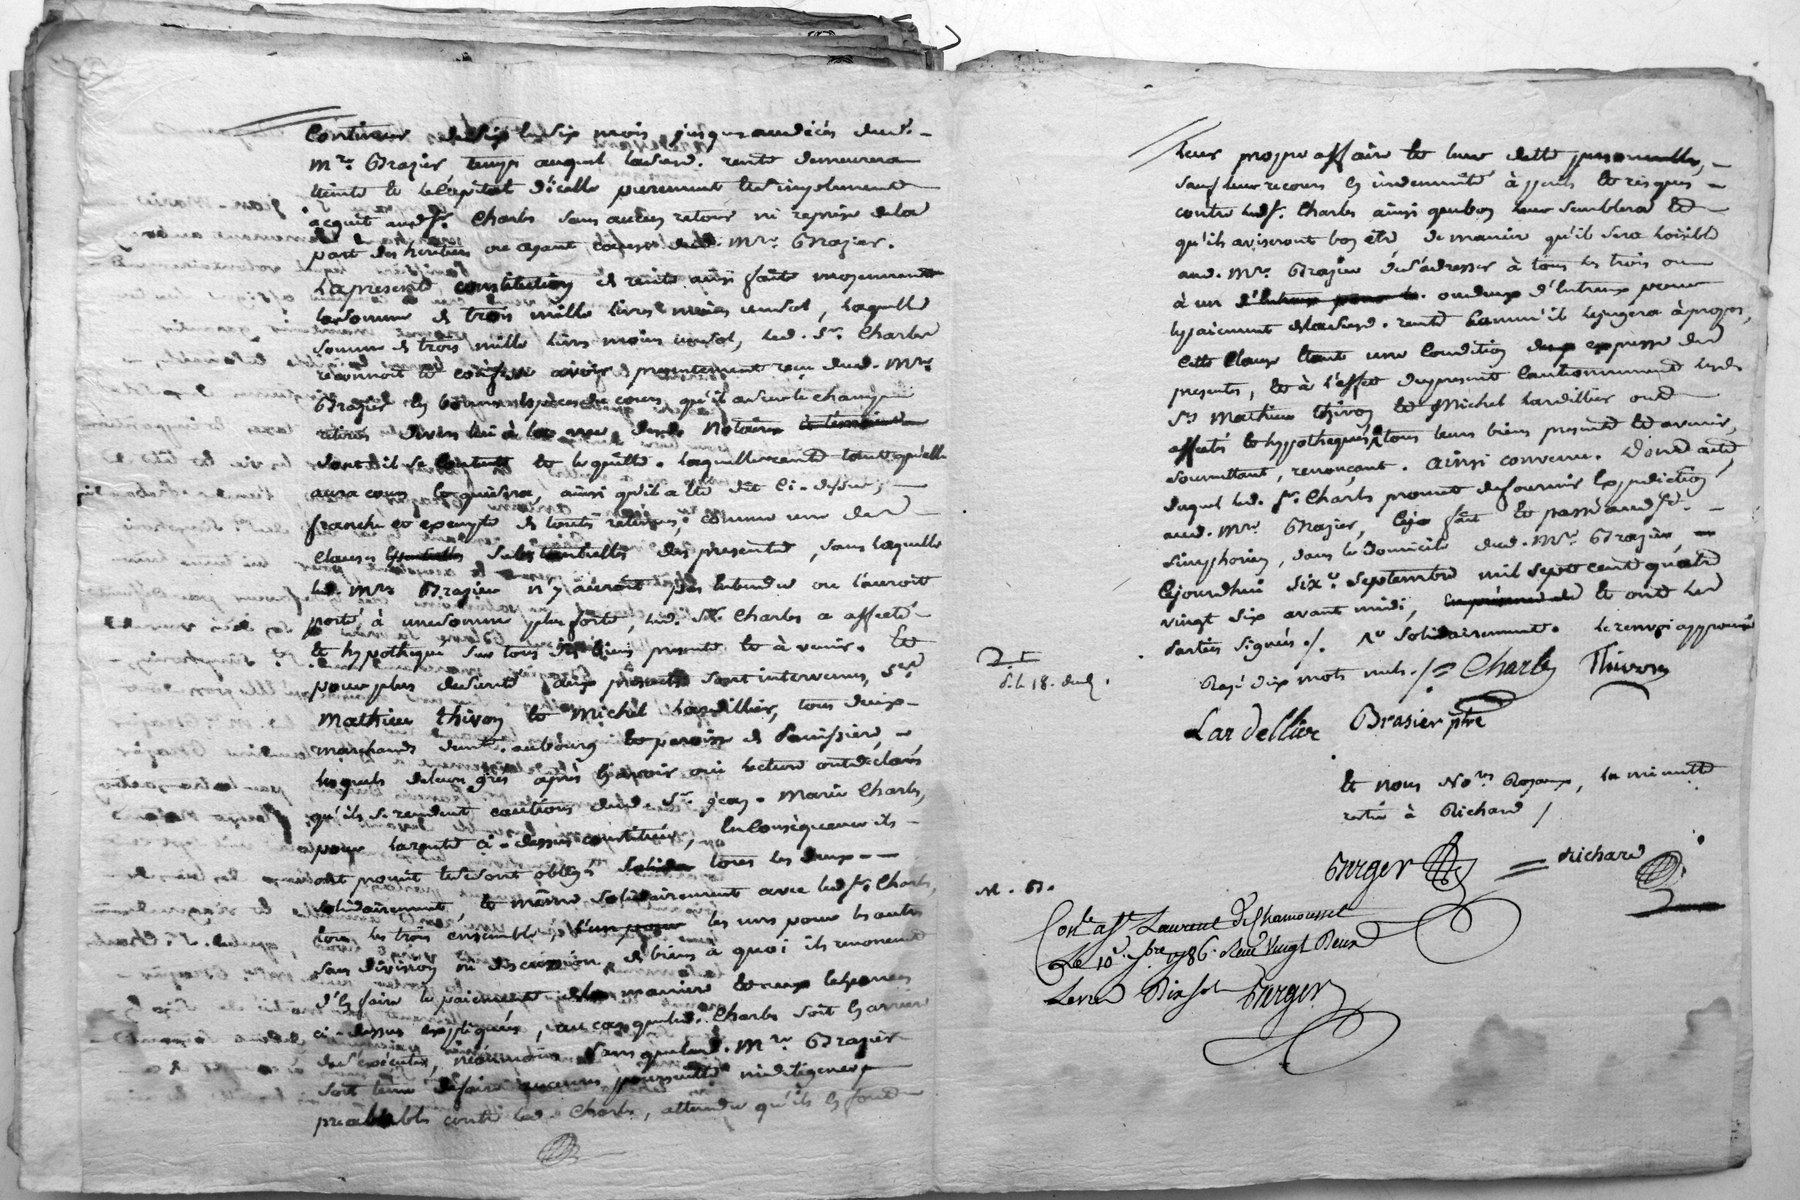 Continuer de six en six mois jusques au décès dud.
Mre. Brazier temps auquel lad. rente demeurera
éteinte et le Capital d'icelle purement et simplement
acquit aud. Sr. Charles sans aucun retour ni reprise de la
part des héritiers ou ayant cause dud. Mre. Brazier.
La presente constitution de rente ainsi faite moyennant
la somme de trois mille livres moins un sol, laquelle
somme de trois mille livres moins un sol, led. Sr. Charles
reconnoit et confesse avoir presentement reçu dud. Mre.
Brazier en bonnes espèces de cours qu'il a
retirées devers lui à la vue desd. Notaires et témoins
dont il se contente et le quitte. Laquelle rente tant qu'elle
aura cours sera, ainsi qu'il a été dit ci-dessus,
franche et exempte de toutes retenues, comme une des
Clauses substantielles des presentes, sans laquelle
led. Mre. Brazier n'y auroit pas entendu ou l'auroit
porté à une somme plus forte, led. Sr. Charles a affecté
et hypothequé sur tous ses biens presents et à venir. Et
pour plus de sureté aux presentes sont intervenus, Srs.
Mathieu Thivon et Michel Lardillier, tous deux
marchands dem.t au bourg et paroisse de
lesquels de leurs grés après avoir oui lecture ont déclaré
qu'ils se rendent cautions dud. Sr. Jean-Marie Charles,
pour la rente ci-dessus constituée, en Conséquence ils
ont promit et se sont obligés solida tous les deux
solidairement, et même solidairement avec led. Sr. Charles,
tous les trois ensemble, l'un pour les uns pour les autres
sans division ni discussion de biens à quoi ils renoncent
d'en faire le paiement de la maniere et aux
ci-dessus expliqués, au cas que led. Charles soit en arriere
de s'exécuter, néanmoins sans que led. Mre. Brazier
soit tenu de faire aucunes poursuites ni diligences
préalables contre led. Charles, attendu qu'ils en font
leur propre affaire et leur dette personnelle,
sauf leur recours en indemnité à perils et risques
contre led. Sr. Charles ainsi que bon leur semblera et
qu'ils aviseront bon être de maniere qu'il sera loisible
aud. Mre. Brazier de s'adresser à tous les trois ou
à un d'entreux pour le ou deux d'entreux pour
le paiement de lad. rente comm'il le jugera à propos,
Cette Clause étant une Condition expresse des
presentes, et à l'effet du present Cautionnement lesd.
Srs. Mathieu Thivon et Michel Lardillier ont
affecté et hypothequé tous leurs biens presents et avenir,
soumettant, renonçant. Ainsi convenu. Dont acte,
duquel led. Sr. Charles promet de fournir Expédition
aud. Mre. Brazier, fait et passé aud. St.
Simphorien, dans le domicile dud. Mre. Brazier,
cejourdhui six septembre mil sept cent quatre
vingt six avant midi, et ont les
Parties signés ./. No. Solidairement. le renvoi approuvé
Rayé dix mots nuls ./= Charles Thivon
D. t.
d. le 18. dud.
Lardellier Brasier ptre
et nous Nores. Royaux, la minutte
restée à Richard /
Burger = Richard
N. B.
Conle. a St. Laurent de Chamousset
Le 10e. 7bre 1786. Recu Vingt Deux
Livres Dix sols Burger